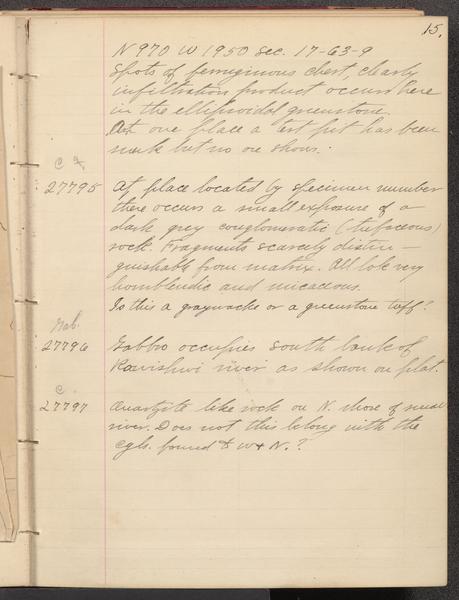 15.
N 970 W 1950 Sec. 17-63-9
Spots of ferruginous chert, clearly
infiltration product occurs here
in the ellipsoidal greenstone.
At one place a test pit has been
sunk but no ore shows.
C
27795 At place located by specimen number
there occurs a small exposure of a
dark grey conglomeratic (tufaceous)
rock. Fragments scarcely distin-
guishable from matrix. All look very
hornblendic and micaceous.
Is this a graywacke or a greenstone tuff?
Gab.
27796 Gabbro occupies south bank of
Kawishiwi river as shown on plat.
C.
27797 Quartzite like rock on N. shore of
river. Does not this belong with the
cgls. found to W & N.?